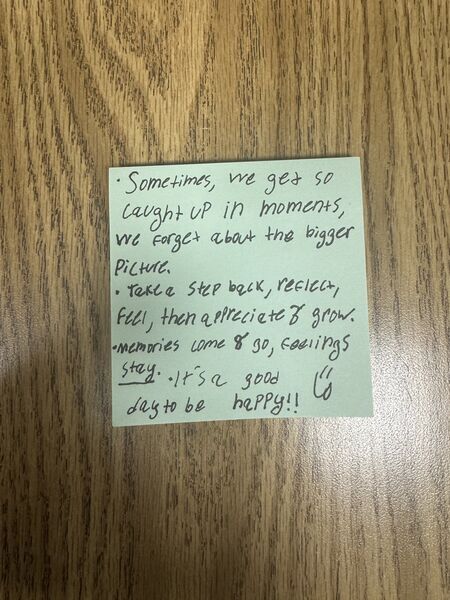 · Sometimes, we get so
caught up in moments,
we forget about the bigger
picture.
· Take a step back, reflect,
feel, then appreciate & grow.
· memories come & go, feelings
stay. · It's a good
day to be happy!!